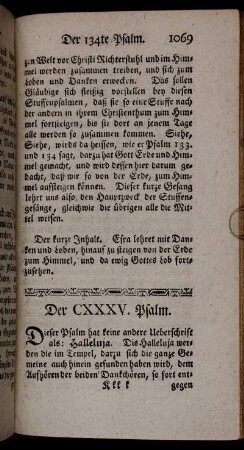 Der 134te Psalm. 1069
zen Welt vor Christi Richterstuhl und im Him-
mel werden zusammen treiben, und sich zum
Loben und Danken erwecken. Das sollen
Gläubige sich fleißig vorstellen bey diesen
Stuffenpsalmen, daß sie so eine Stuffe nach
der andern in ihrem Christenthum zum Him-
mel fortsteigen, bis sie dort an jenem Tage
alle werden so zusammen kommen. Siehe,
Siehe, wirds da heissen, wie er Psalm 133.
und 134 sagt, dazu hat Gott Erde und Him-
mel gemacht, und wird dessen hier darum ge-
dacht, daß wir so von der Erde, zum Him-
mel aufsteigen können. Dieser kurze Gesang
lehrt uns also, den Hauptzweck der Stuffen-
gesänge, gleichwie die übrigen alle die Mit-
tel weisen.
Der kurze Inhalt. Esra lehret mit Dan-
ken und Loben, hinauf zu steigen von der Erde
zum Himmel, und da ewig Gottes Lob fort-
zusetzen.
Der CXXXV. Psalm.
Dieser Psalm hat keine andere Ueberschrift
als: Halleluja. Dis Halleluja wer-
den die im Tempel, darzu sich die ganze Ge-
meine auch hinein gefunden haben wird, dem
Aufhören der beiden Dankchören, so fort ent-
Kkk k gegen